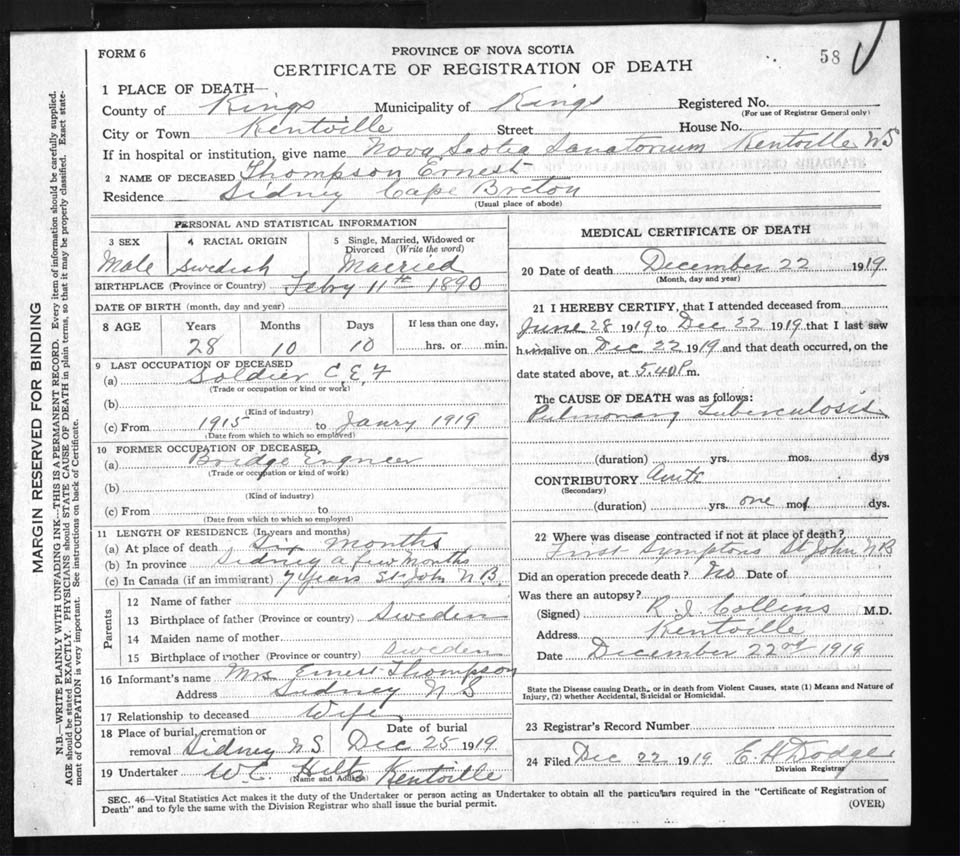 FORM 6
PROVINCE OF NOVA SCOTIA
58
CERTIFICATE OF REGISTRATION OF DEATH
1 PLACE OF DEATH—
County of Kings Municipality of Kings Registered No.
(For use of Registrar General only)
City or Town Kentville Street House No.
If in hospital or institution, give name Nova Scotia Sanatorium Kentville NS
2 NAME OF DECEASED Thompson Ernest
Residence Sidney Cape Breton
(Usual place of abode)
PERSONAL AND STATISTICAL INFORMATION
3 SEX 4 RACIAL ORIGIN 5 Single, Married, Widowed or Divorced (Write the word)
Male Swedish Married
BIRTHPLACE (Province or Country) Febry 11th 1890
DATE OF BIRTH (month, day and year)
8 AGE Years Months Days If less than one day,
28 10 10 hrs. or min.
9 LAST OCCUPATION OF DECEASED
(a) Soldier C.E.F
(Trade or occupation or kind or work)
(b)
(Kind of industry)
(c) From 1915 to Janry 1919
(Date from which to which so employed)
10 FORMER OCCUPATION OF DECEASED,
(a) Bridge Engneer
(Trade or occupation or kind of work)
(b)
(Kind of industry)
(c) From to
(Date from which to which so employed)
11 LENGTH OF RESIDENCE (In years and months)
(a) At place of death Six Months
(b) In province Sidney a few months
(c) In Canada (if an immigrant) 7 years St John N.B.
Parents
12 Name of father
13 Birthplace of father (Province or country) Sweden
14 Maiden name of mother
15 Birthplace of mother (Province or country) Sweden
16 Informant's name Mrs Ernest Thompson
Address Sidney N S
17 Relationship to deceased Wife
18 Place of burial, cremation or removal Sidney N.S. Date of burial Dec 25 1919
19 Undertaker W.C. Hiltz Kentville
(Name and Address)
MEDICAL CERTIFICATE OF DEATH
20 Date of death December 22 1919
(Month, day and year)
21 I HEREBY CERTIFY, that I attended deceased from
June 28 1919 to Dec 22 1919 that I last saw
him alive on Dec 22 1919 and that death occurred, on the
date stated above, at 5.40 P m.
The CAUSE OF DEATH was as follows:
Pulmonary Tuberculosis
(duration) yrs. mos. dys
CONTRIBUTORY
(Secondary)
(duration) yrs. one mos. dys.
22 Where was disease contracted if not at place of death?
First Symptoms St John N B
Did an operation precede death? No Date of
Was there an autopsy?
(Signed) R. J. Collins M.D.
Address Kentville
Date December 22nd 1919
State the Disease causing Death, or in death from Violent Causes, state (1) Means and Nature of Injury, (2) whether Accidental, Suicidal or Homicidal.
23 Registrar's Record Number
24 Filed Dec 22 1919 E H Dodge
Division Registrar
SEC. 46—Vital Statistics Act makes it the duty of the Undertaker or person acting as Undertaker to obtain all the particulars required in the "Certificate of Registration of
Death" and to fyle the same with the Division Registrar who shall issue the burial permit.
(OVER)
MARGIN RESERVED FOR BINDING
N.B.—WRITE PLAINLY WITH UNFADING INK—THIS IS A PERMANENT RECORD. Every item of information should be carefully supplied.
AGE should be stated EXACTLY. PHYSICIANS should STATE CAUSE OF DEATH in plain terms, so that it may be properly classified. Exact state-
ment of OCCUPATION is very important. See instructions on back of Certificate.